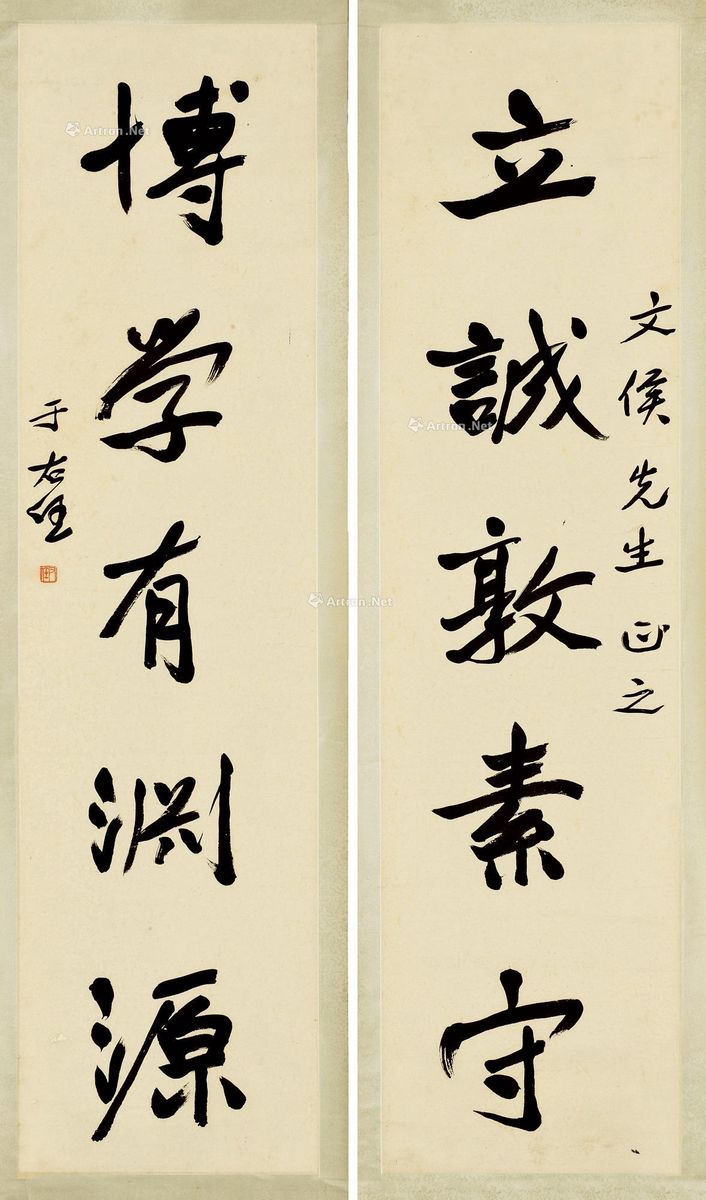 文侯先生正之
立誠敦素守
博学有渊源
于右任
Artron.Net
Artron.Net
Artron.Net